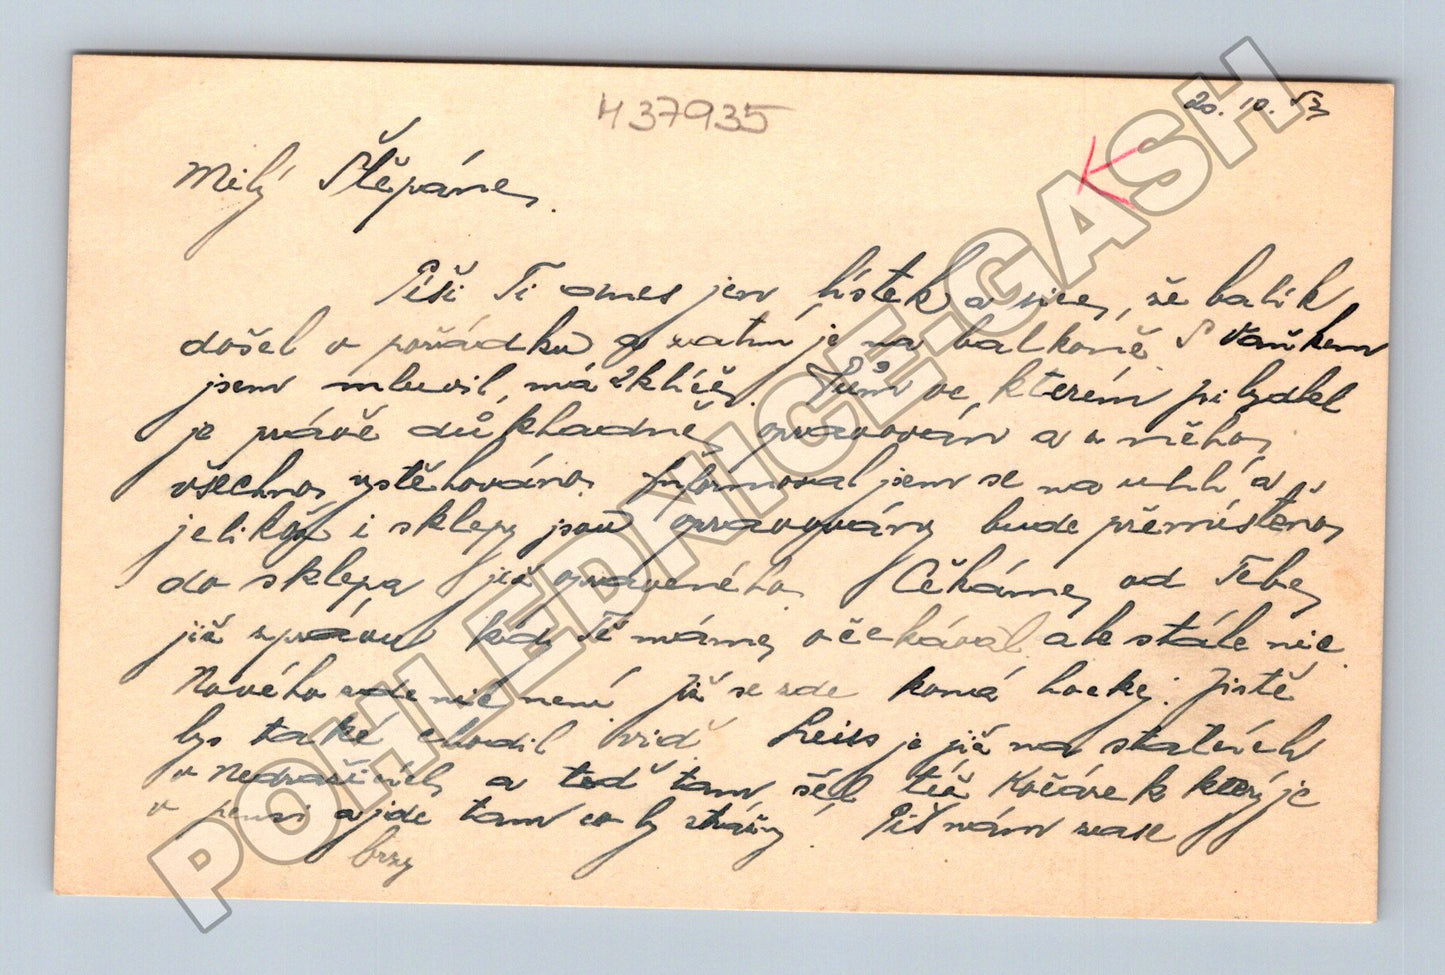 H37935
20. 10. 53
Milý Štěpáne,
Píši Ti dnes jen lístek a sice, že balík
došel v pořádku, a zatím je na balkoně. S Vaňkem
jsem mluvil, má 2 klíče. Dům ve kterém si bydlel
je právě důkladně opravován a z něho
všechno vystěhováno. Informoval jsem se na uhlí a
jelikož i sklepy jsou opravovány bude přemístěno
do sklepa již opraveného. Čekáme od Tebe
již zprávu kdy Tě máme očekávat ale stále nic.
Nového zde nic není. Již se zde koná hockej. Jistě
bys také chodil viď. Leiss je již na statcích
v Nedražicích a teď tam šel též Kočárek který je
v pensi a jde tam co by strážný. Piš nám zase
brzy
POHLEDNICE.GASH